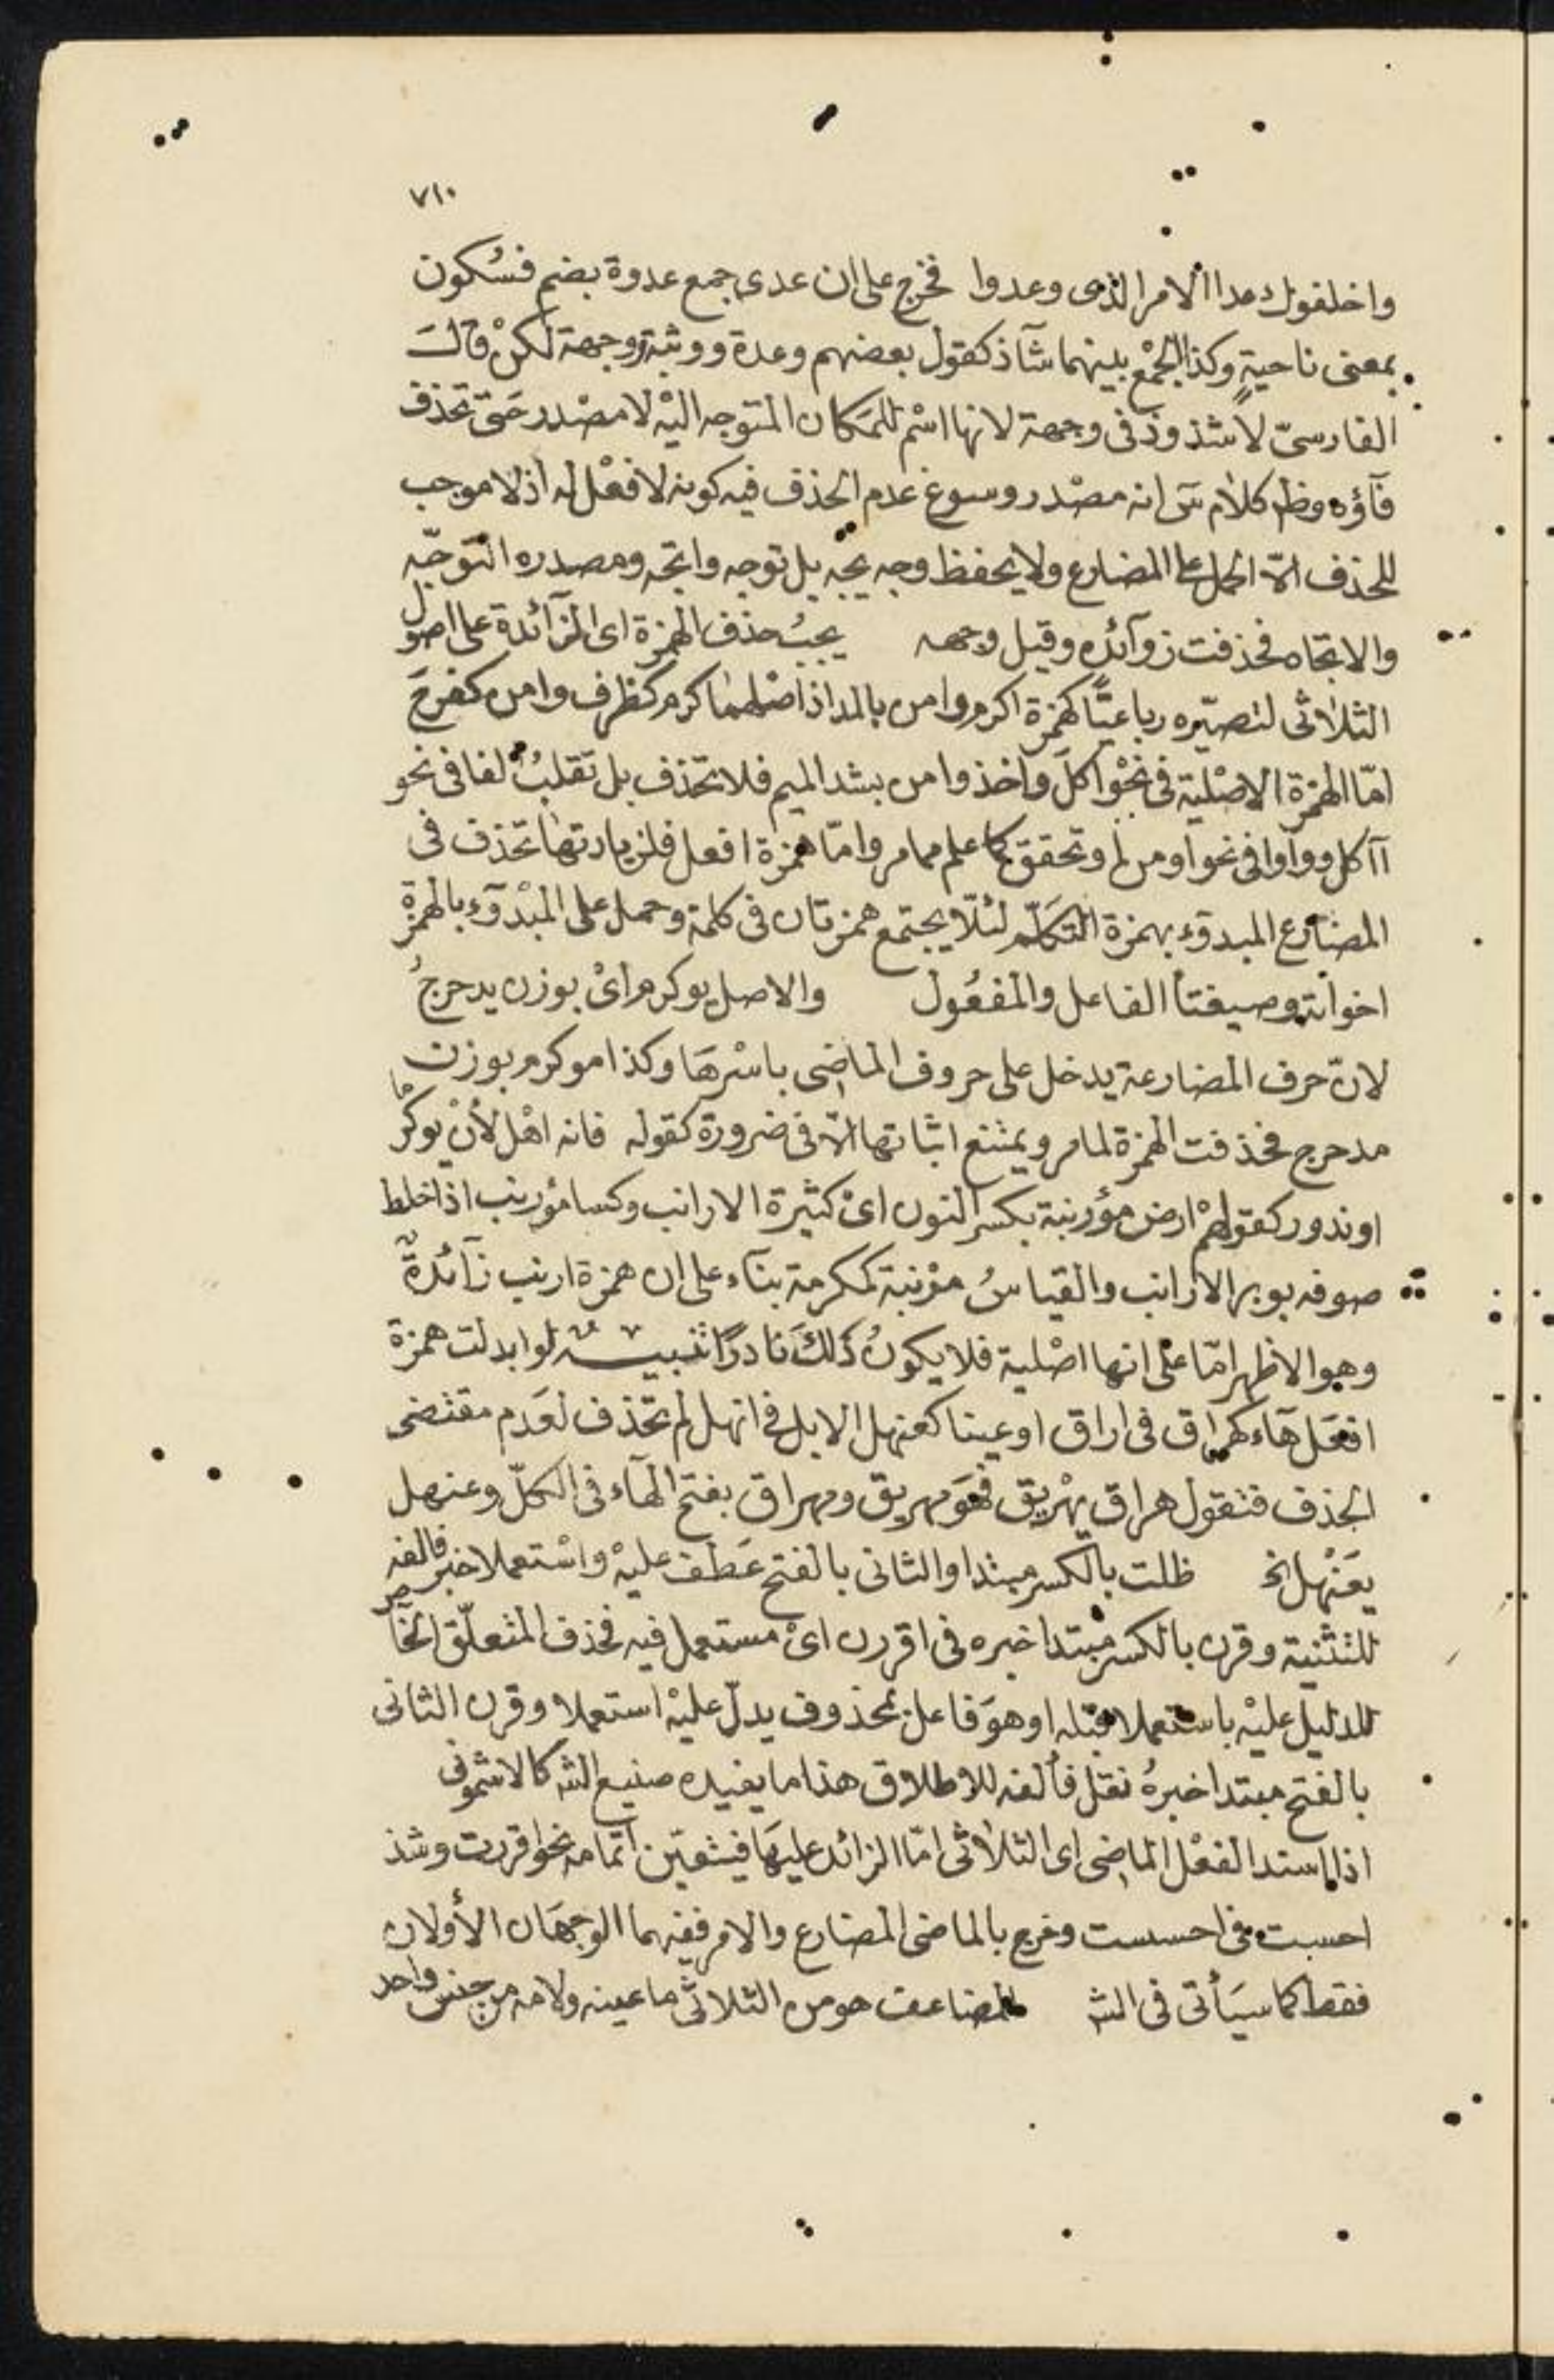 ٧١٠
واخلفوك عدا الامر الذى وعدوا فخرج على ان عدى جمع عدوة بضم فسُكون
بمعنى ناحيةٍ وكذا الجمْع بينهما شآذ كقول بعضهم وعدة ووثبة ووجهة لكنْ قالَ
الفارسىّ لا شذوذ فى وجهة لانها اسْم للمَكان المتوجه اليْه لا مصْدر حَتى تحذف
فآؤه وظ كلام سَ انه مصْدر وسوغ عدم الحذف فيه كونه لا فعْل له اذ لا موجب
للحذف الّا الحمل على المضارع ولا يحفظ وجه يجه بل توجه واتجه ومصدره التوجّه
والاتجاه فحذفت زوآئده وقيل وجهه يجبُ حذف الهمزة اى الزآئدة على اصول
الثلاثى لتصيّره رباعيًّا كهمزة اكرم وامن بالمد اذ اصْلهما كرم كظرف وامن كفرحَ
امّا الهمزة الاصْلية فى نحْو اكلَ واخذ وامن بشد الميم فلا تحذف بل تقلبُ الفا فى نحو
آاكل وواوا فى نحو اومن لم وتحقق كما علم مما مر وامّا همزة افعل فلزيادتها تحذف فى
المضارع المبدوء بهمزة التكلّم لئلّا يجتمع همزتان فى كلمة وحمل على المبْدوّء بالهمزة
اخواته وصيغتا الفاعل والمفعُول والاصل يوكرم اىْ بوزن يدحرجُ
لانّ حرف المضارعة يدخل على حروف الماضى باسْرهَا وكذا موكرم بوزن
مدحرج فحذفت الهمزة لما مر ويمتنع اثباتها الّا فى ضرورة كقوله فانه اهْل لأنْ يوكرما
او ندور كقولهمْ ارض مؤرنبة بكسر النون اىْ كثيرة الارانب وكسا مؤرنب اذا خلط
صوفه بوبر الارانب والقياسُ مؤنبة كمكرمة بنآء على ان همزة ارنب زآئدةٌ
وهو الاظهر امّا على انها اصْلية فلا يكونُ ذلكَ نادرًا تنبيـــه لو ابدلت همزة
افعَل هَاء كهراق فى اراق او عينا كعنهل الابل فى انهل لم تحذف لعَدم مقتضى
الحذف فتقول هراق يهْريق فهوَ مهريق ومهراق بفتح الهآء فى الكلّ وعنهل
يعَنْهل الخ ظلت بالكسر مبتدا والثانى بالفتح عَطف عليْه واسْتعملا خبر فالفه
للتثنية وقرن بالكسر مبتدا خبره فى اقررن اىْ مستعمل فيه فحذف المتعلّق الخاص
للدليل عليْه باستعملا قبله او هوَ فاعل بمحذوف يدلّ عليْه استعملا وقرن الثانى
بالفتح مبتدا خبرهُ نقل فألفه للاطلاق هذا ما يفيده صنيع الشه كالاشمونى
اذا اسند الفعْل الماضى اى الثلاثى امّا الزائد عليهَا فيتعيّن اتمامه نحو اقررت وشذ
احسبت فى احسست وخرج بالماضى المضارع والامر ففيهما الوجهَان الأولان
فقط كما سيَأتى فى الشه المضاعف هو من الثلاثى ما عينه ولامه من جنس واحد